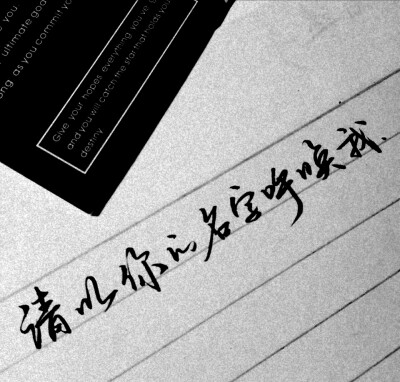 you
ultimate goa
ong as you commit yo
Give your hopes everything you
and you will catch the star that holds you
destiny
请以你的名字呼唤我.